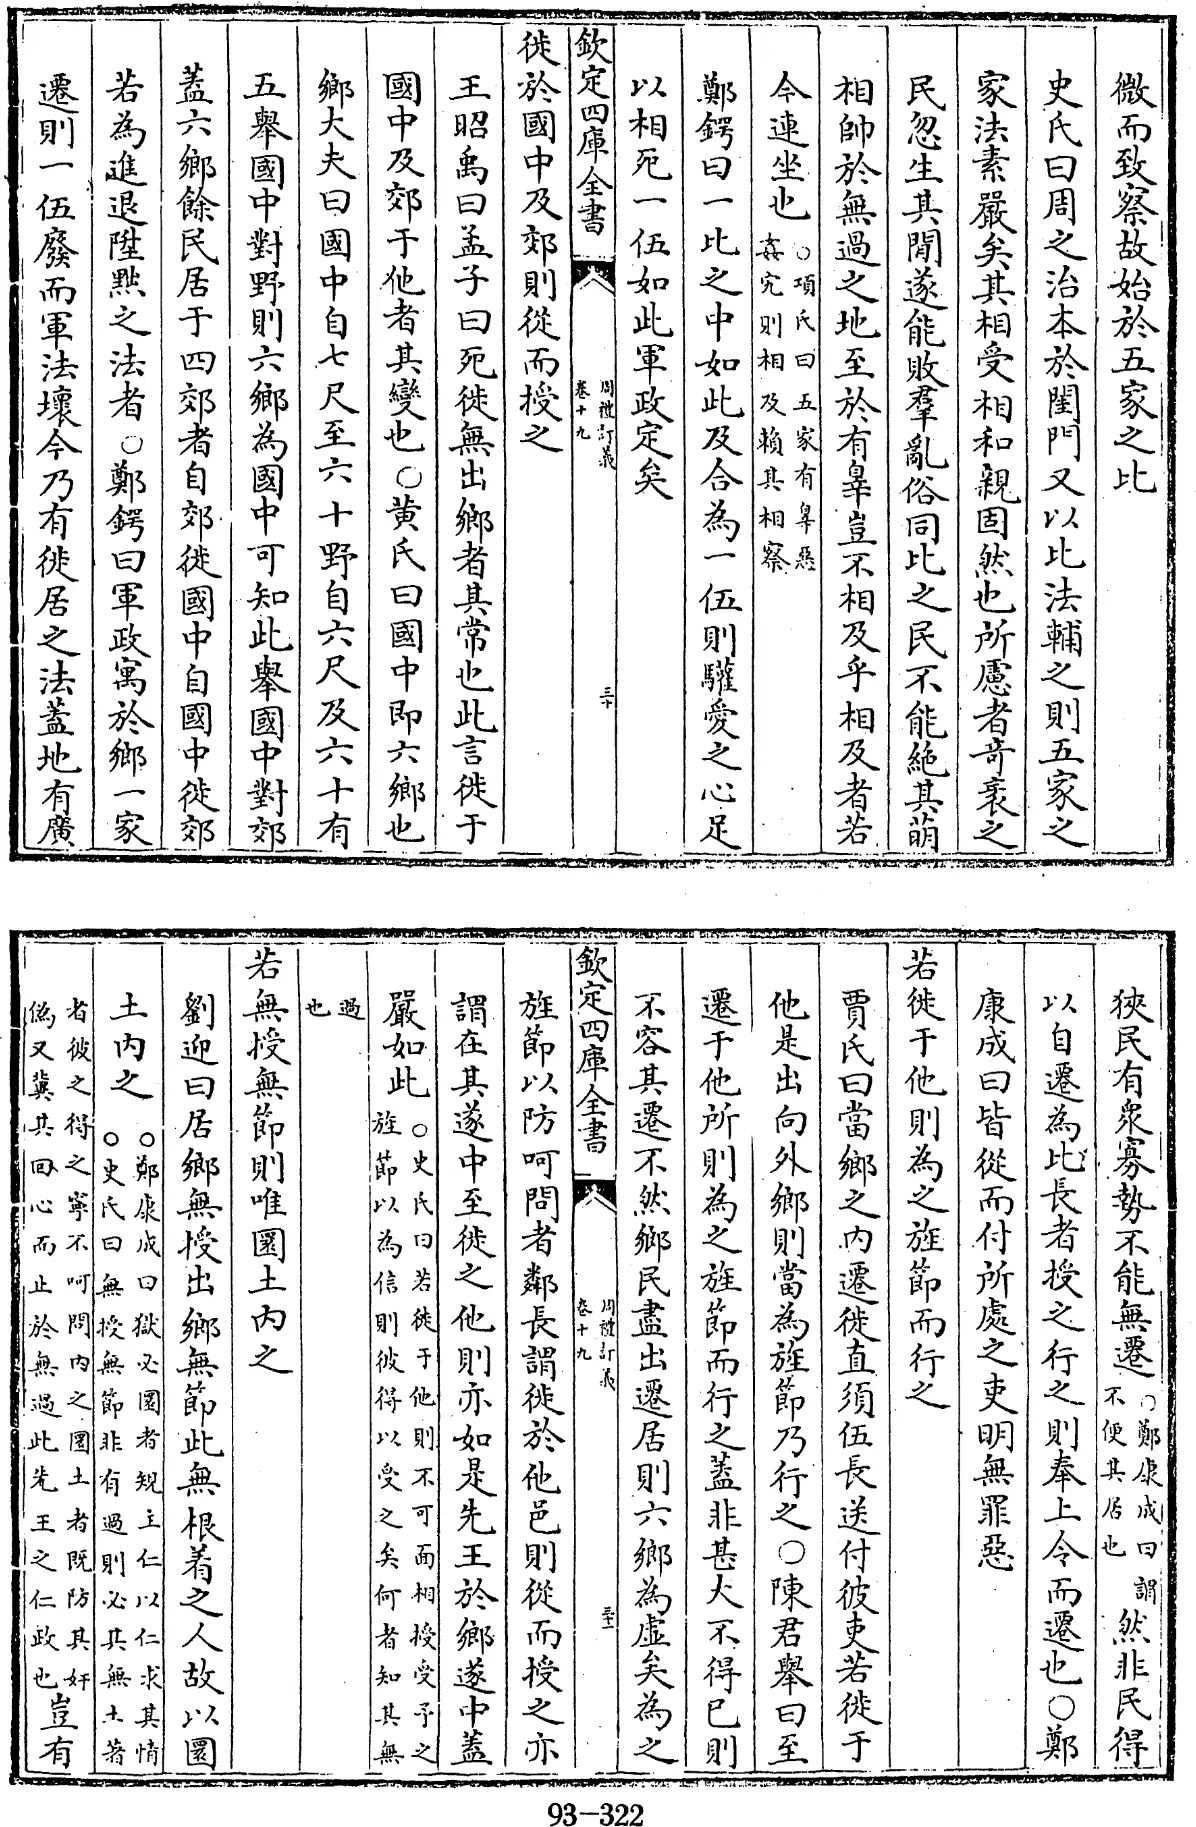 微而致察故始於五家之比
史氏曰周之治本於閨門又以比法輔之則五家之
家法素嚴矣其相受相和親固然也所慮者竒衺之
民忽生其間遂能敗羣亂俗同比之民不能絶其萌
相帥於無過之地至於有辠豈不相及乎相及者若
今連坐也○項氏曰五家有辠惡
姦宄則相及頼其相察
鄭鍔曰一比之中如此及合為一伍則驩愛之心足
以相死一伍如此軍政定矣
欽定四庫全書
周禮訂義
卷十九
三十
徙於國中及郊則從而授之
王昭禹曰孟子曰死徙無出鄉者其常也此言徙于
國中及郊于他者其變也○黄氏曰國中即六鄉也
鄉大夫曰國中自七尺至六十野自六尺及六十有
五舉國中對野則六鄉為國中可知此舉國中對郊
蓋六鄉餘民居于四郊者自郊徙國中自國中徙郊
若為進退陞黜之法者○鄭鍔曰軍政寓於鄉一家
遷則一伍廢而軍法壞今乃有徙居之法蓋地有廣
狹民有衆寡勢不能無遷○鄭康成曰謂
不便其居也
然非民得
以自遷為比長者授之行之則奉上令而遷也○鄭
康成曰皆從而付所處之吏明無罪惡
若徙于他則為之旌節而行之
賈氏曰當鄉之内遷徙直須伍長送付彼吏若徙于
他是出向外鄉則當為旌節乃行之○陳君舉曰至
遷于他所則為之旌節而行之蓋非甚大不得已則
不容其遷不然鄉民盡出遷居則六鄉為虚矣為之
欽定四庫全書
周禮訂義
卷十九
三十一
旌節以防呵問者鄰長謂徙於他邑則從而授之亦
謂在其遂中至徙之他則亦如是先王於鄉遂中蓋
嚴如此○史氏曰若徙于他則不可面相授受予之
旌節以為信則彼得以受之矣何者知其無
過
也
若無授無節則唯圜土内之
劉迎曰居鄉無授出鄉無節此無根着之人故以圜
土内之○鄭康成曰獄必圜者規主仁以仁求其情
○史氏曰無授無節非有過則必其無土著
者彼之得之寧不呵問内之圜土者既防其奸
僞又冀其回心而止於無過此先王之仁政也
豈有
93-322